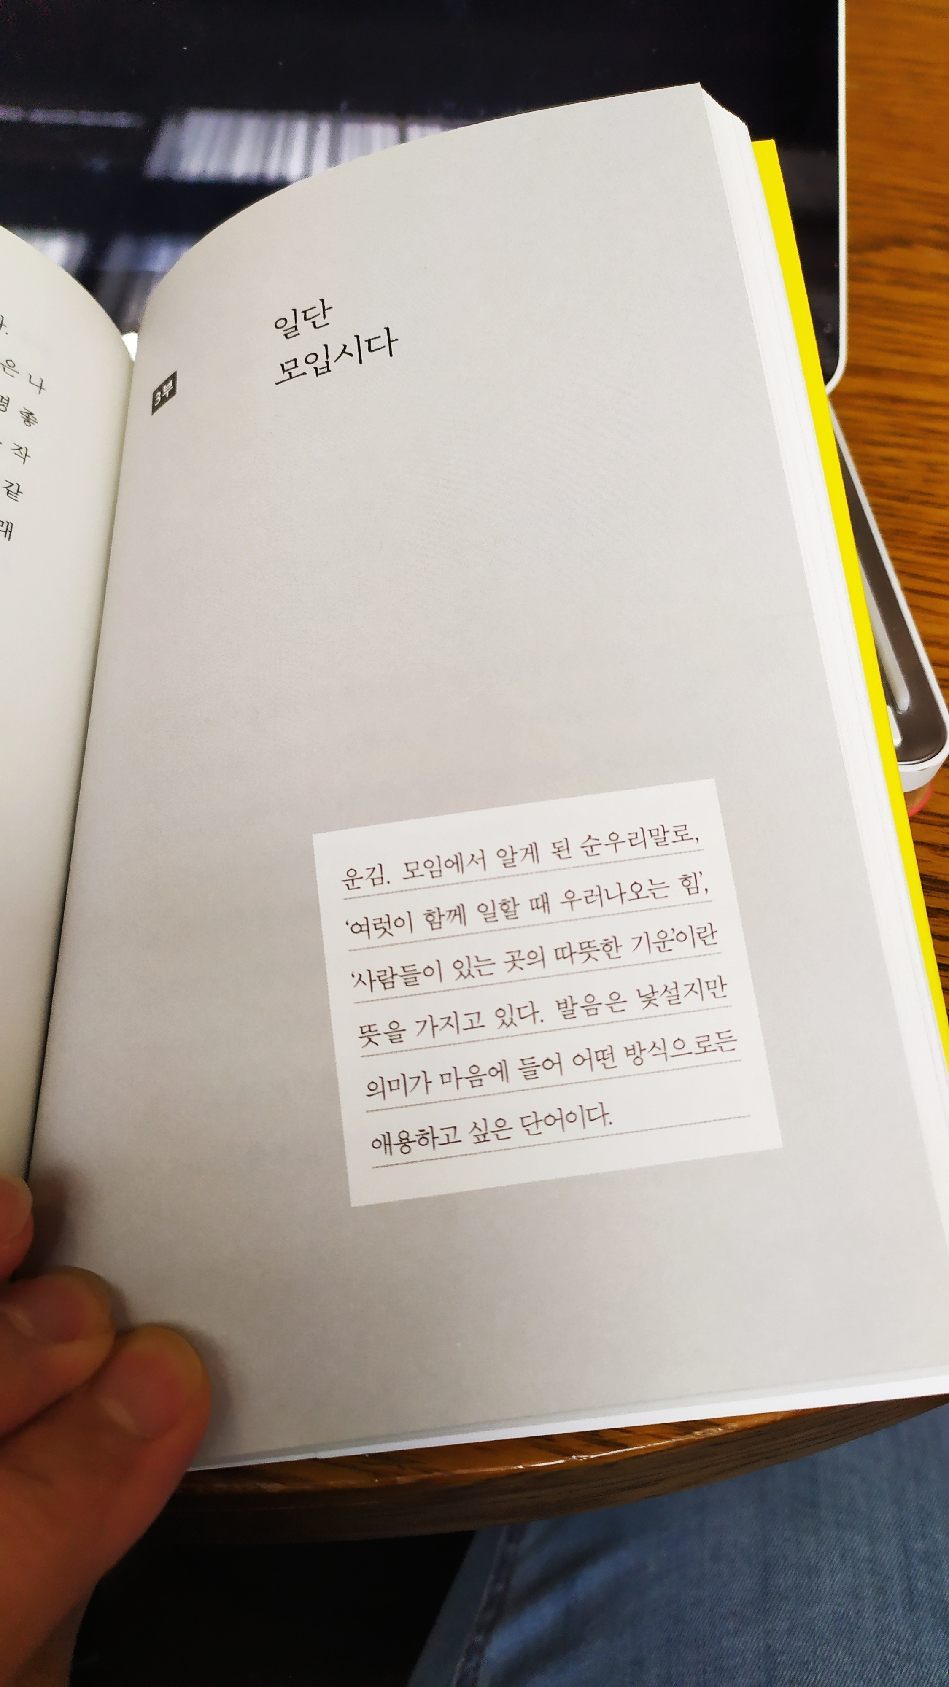 은 나
좋
작
같
래
3부
일단
모입시다
운김. 모임에서 알게 된 순우리말로,
‘여럿이 함께 일할 때 우러나오는 힘’,
‘사람들이 있는 곳의 따뜻한 기운’이란
뜻을 가지고 있다. 발음은 낯설지만
의미가 마음에 들어 어떤 방식으로든
애용하고 싶은 단어이다.